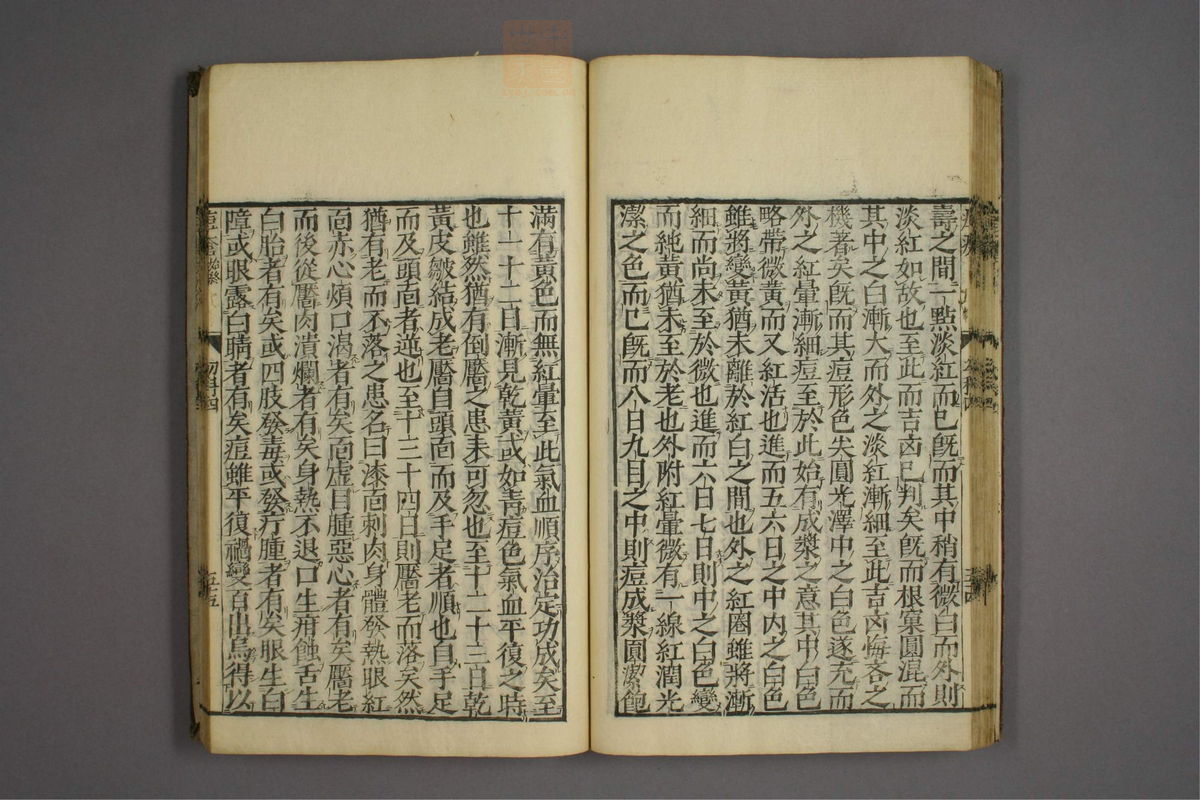 壽之間一點淡紅而已既而其中稍有微白而外則
淡紅如故也至此而吉凶已判矣既而根窠圓混而
其中之白漸大而外之淡紅漸細至此吉凶悔吝之
機著矣既而其痘形色尖圓光澤中之白色遂充而
外之紅暈漸細痘至於此始有成漿之意其中白色
略帶微黃而又紅活也進而五六日之中內之白色
雖將變黃猶未離於紅白之間也外之紅圈雖將漸
細而尚未至於微也進而六日七日則中之白色變
而純黃猶未至於老也外附紅暈微有一線紅潤光
潔之色而已既而八日九日之中則痘成漿圓潔飽
滿有黃色而無紅暈至此氣血順序治定功成矣至
十一十二日漸見乾黃或如青痘色氣血平復之時
也雖然猶有倒靨之患未可忽也至十二十三日乾
黃皮皺結成老靨自頭面而及手足者順也自手足
而及頭面者逆也至十三十四日則靨老而落矣然
猶有老而不落之患名曰漆面刺肉身體發熱眼紅
面赤心煩口渴者有矣面虛目腫惡心者有矣靨老
而後從靨肉潰爛者有矣身熱不退口生疳蝕舌生
白胎者有矣或四肢發毒或發疔腫者有矣眼生白
障或眼露白睛者有矣痘雖平復禍變百出烏得以
初科四
五十五